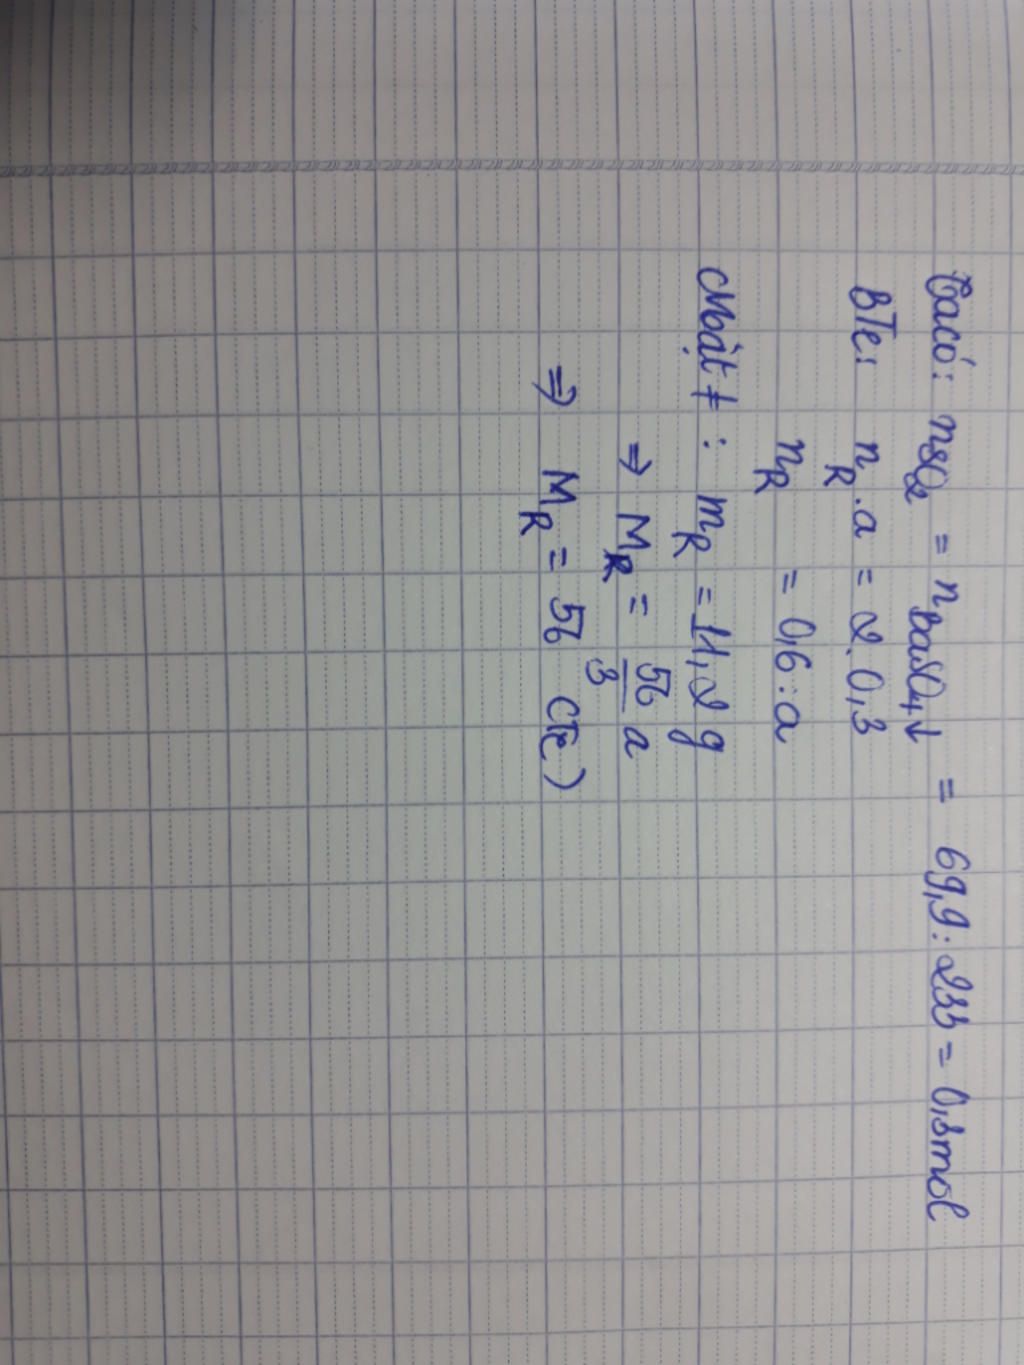 Ta có: nSO₂ = nBaSO₄↓ = 69,9:233 = 0,3mol
BTe: nR.a = 2.0,3
nR = 0,6:a
Mặt ≠: mR = 11,2 g
⇒ MR = 56/3 a
⇒ MR = 56 (Fe)